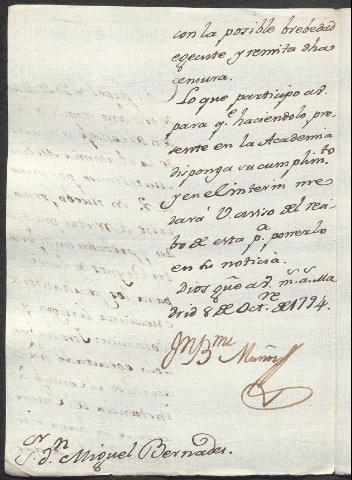 con la posible brebedad
egecute y remita dha
censura.
Lo que participo a V.
para q.e haciendolo pre
sente en la Academia
disponga su cumplim.to
y en el interim me
dará V. aviso del reci
bo de esta p.a ponerlo
en su noticia.
Dios gũe a V. m.s a.s Ma
drid 8 de Oct.re de 1794.
Jn B.me Muñoz
S.r D.n Miguel Bernades.